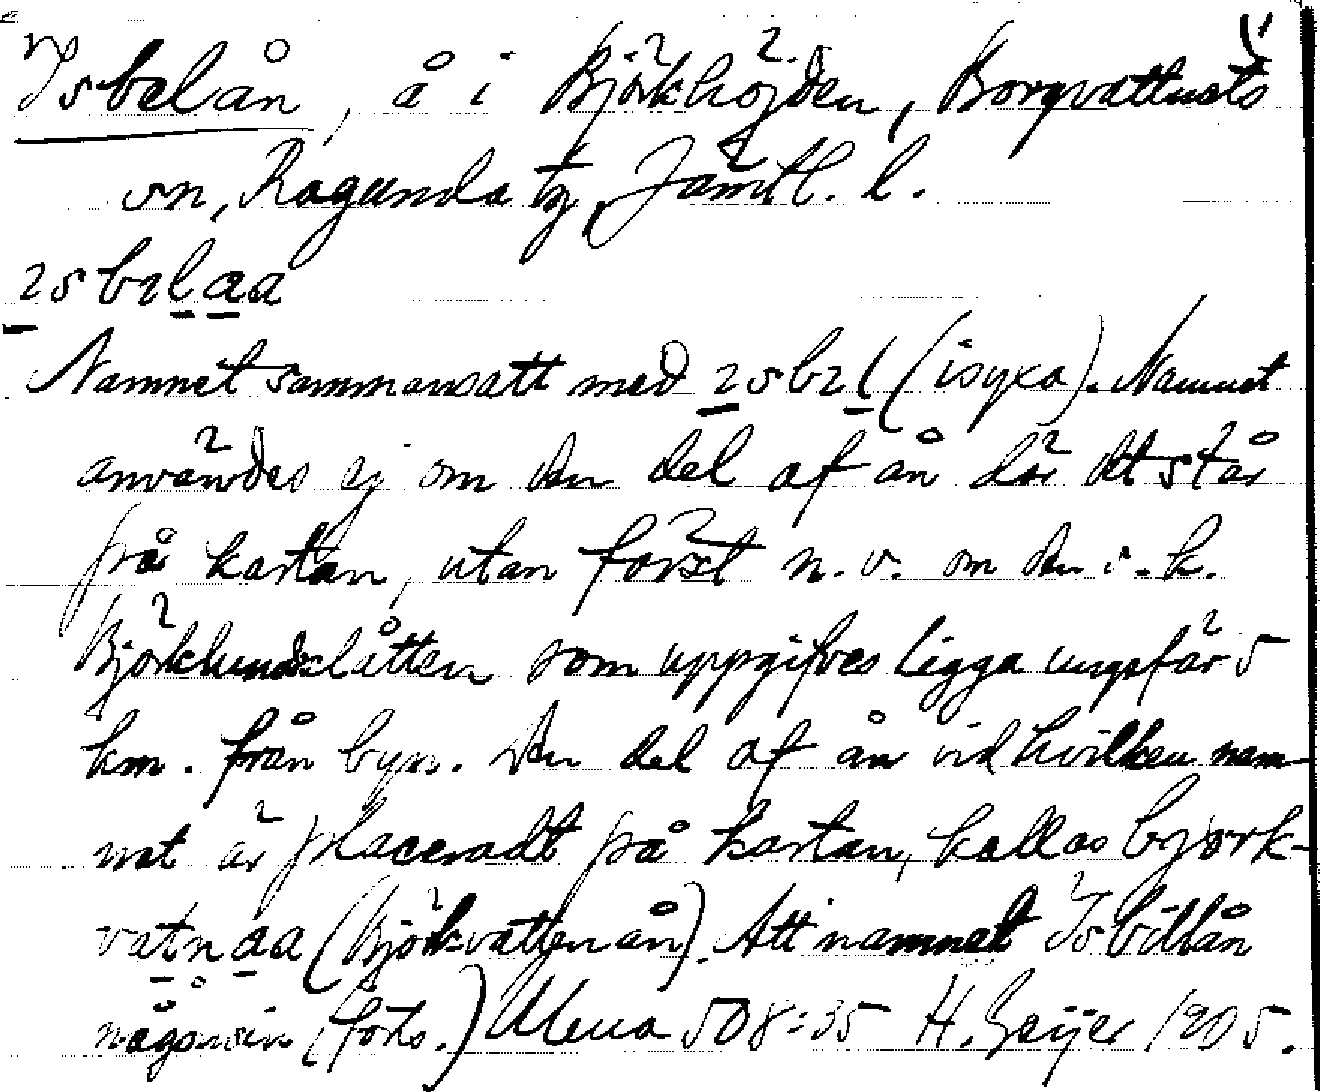 Isbelån, å i Björkhöjden, Borgvattnets
sn, Ragunda tg, Jämtl. l.
ısbılaa
Namnet sammansatt med ısbıl (isyxa). Namnet
användes ej om den del af ån där det står
på kartan, utan först n.v. om den s.k.
Björklundslåtten som uppgifves ligga ungefär 5
km. från byn. Den del af ån vid hvilken nam-
net är placeradt på kartan, kallas bjørk-
vatnaa (Björkvattenån). Att namnet Isbillån
någonsin (forts.) Mena 508:35 H. Geijer 1905.